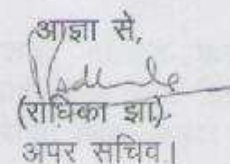 आज्ञा से,
(राधिका झा)
अपर सचिव।